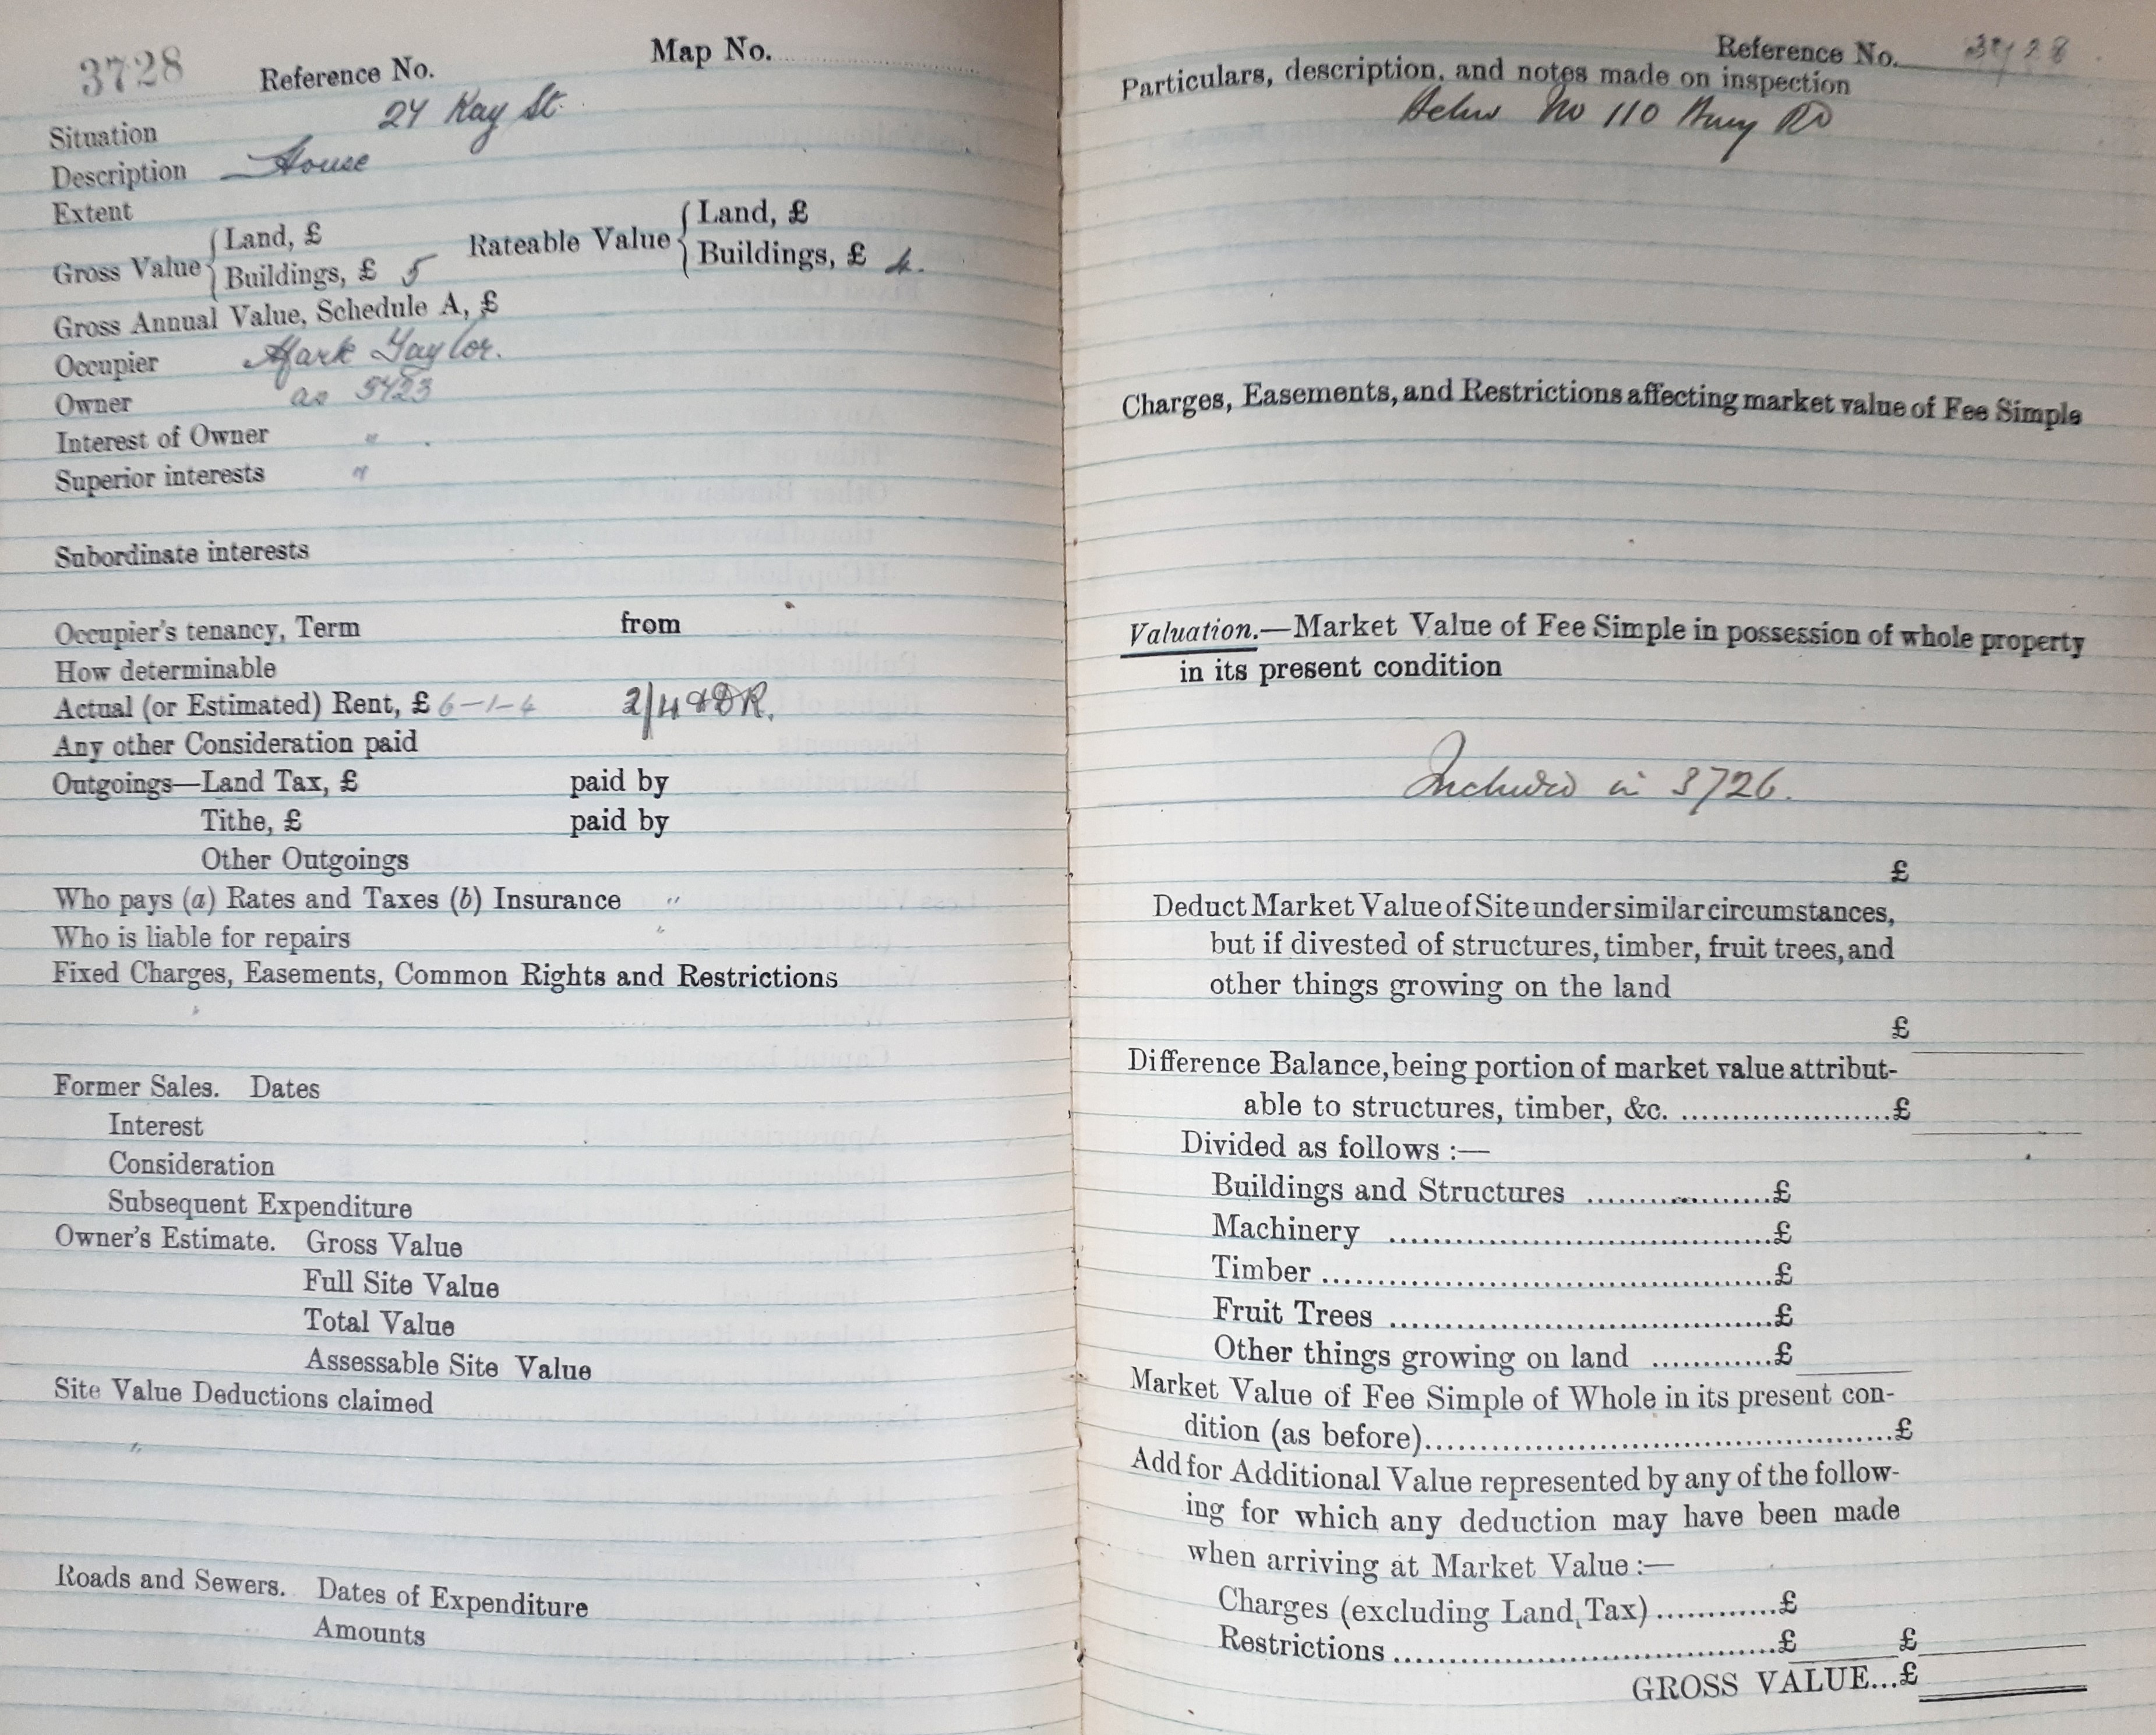 3728 Reference No. Map No.
Situation 24 Kay St.
Description House
Extent
Gross Value { Land, £
Buildings, £ 5
Rateable Value { Land, £
Buildings, £ 4.
Gross Annual Value, Schedule A, £
Occupier Mark Taylor.
Owner as 3423
Interest of Owner " .
Superior interests "
Subordinate interests
Occupier's tenancy, Term from
How determinable
Actual (or Estimated) Rent, £ 6-1-4 2/4
Any other Consideration paid
Outgoings—Land Tax, £ paid by
Tithe, £ paid by
Other Outgoings
Who pays (a) Rates and Taxes (b) Insurance "
Who is liable for repairs "
Fixed Charges, Easements, Common Rights and Restrictions
"
Former Sales. Dates
Interest
Consideration
Subsequent Expenditure
Owner's Estimate. Gross Value
Full Site Value
Total Value
Assessable Site Value
Site Value Deductions claimed
"
Roads and Sewers. Dates of Expenditure
Amounts
Reference No. 3728
Particulars, description, and notes made on inspection
Below No 110 Rd
Charges, Easements, and Restrictions affecting market value of Fee Simple
Valuation.—Market Value of Fee Simple in possession of whole property
in its present condition
Included in 3726.
£
Deduct Market Value of Site under similar circumstances,
but if divested of structures, timber, fruit trees, and
other things growing on the land
£
Difference Balance, being portion of market value attribut-
able to structures, timber, &c. ......................£
Divided as follows :—
Buildings and Structures ....................£
Machinery .......................................£
Timber .............................................£
Fruit Trees .......................................£
Other things growing on land ............£
Market Value of Fee Simple of Whole in its present con-
dition (as before)..................................................£
Add for Additional Value represented by any of the follow-
ing for which any deduction may have been made
when arriving at Market Value :—
Charges (excluding Land Tax) ............£
Restrictions .......................................£ £
GROSS VALUE...£